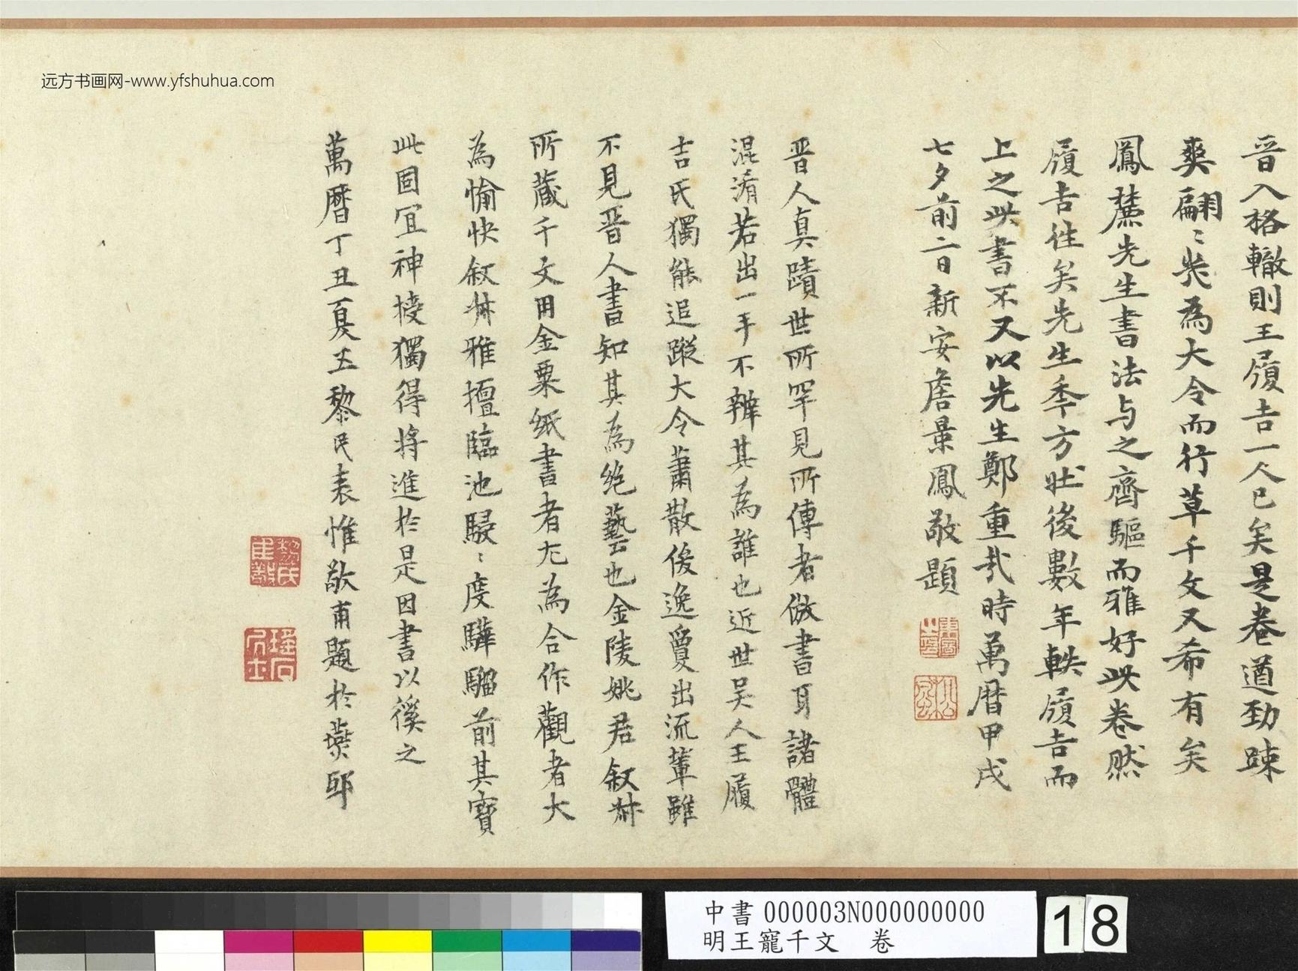 远方书画网-www.yfshuhua.com
晋入格轍則王履吉一人已矣是卷遒勁踈
爽翩〻步為大令而行草千文又希有矣
鳳麓先生書法与之齊驅而雅好此卷然
履吉徃矣先生季方壯後數年軼履吉而
上之此書不又以先生鄭重哉時萬曆甲戌
七夕前二日新安詹景鳳敬題
晋人真蹟世所罕見所傳者倣書耳諸體
混淆若出一手不辨其為誰也近世吴人王履
吉氏獨能追蹤大令蕭散俊逸敻出流輩雖
不見晋人書知其為絶藝也金陵姚君叙州
所藏千文用金粟紙書者尤為合作觀者大
為愉快叙州雅擅臨池駸〻度驊騮前其寶
此固宜神接獨得将進於是因書以徯之
萬曆丁丑夏五黎民表惟敬甫題於燕邸
黎氏惟敬
瑤石
中書 000003N000000000
明王寵千文 卷
18